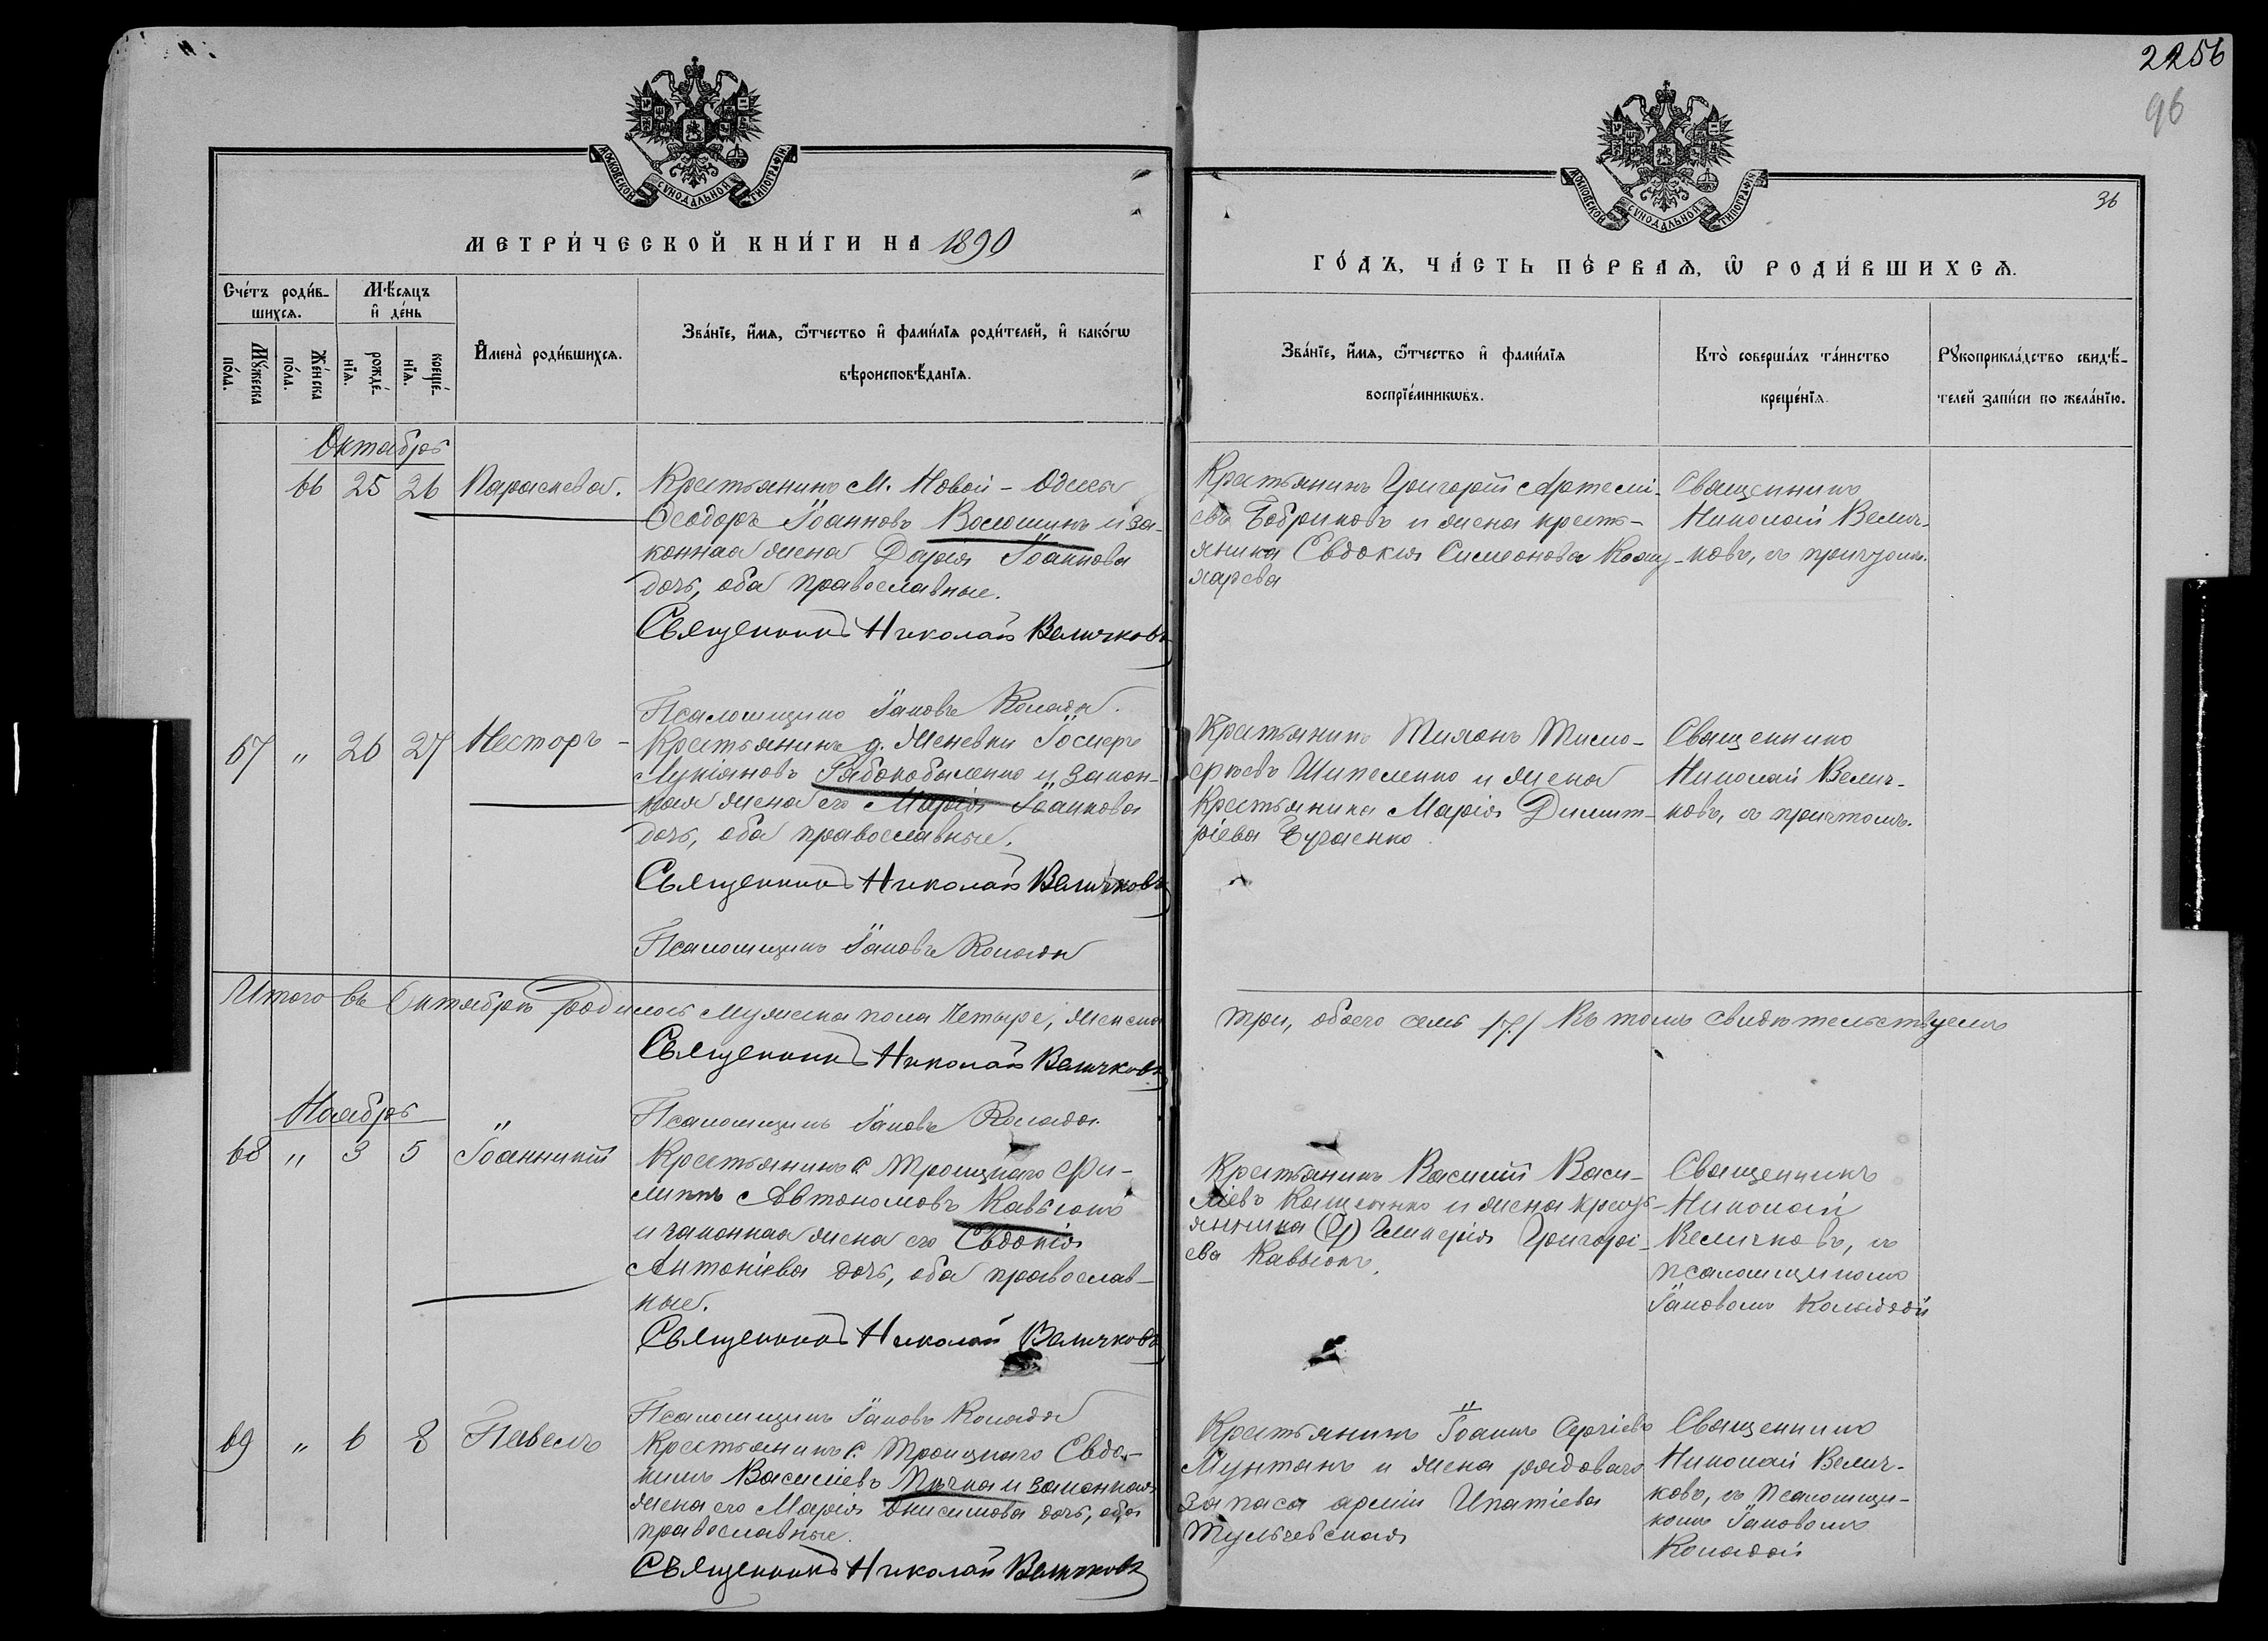 2256
96
36
МОСКОВСКОЙ СѴНОДАЛЬНОЙ ТИПОГРАФІИ
МОСКОВСКОЙ СѴНОДАЛЬНОЙ ТИПОГРАФІИ
МЕТРИ́ЧЕСКОЙ КНИ́ГИ НА 1890
ГО́ДЪ, ЧА́СТЬ ПЕ́РВАѦ, Ѡ РОДИ́ВШИХСѦ.
Сче́тъ роди́в-
шихсѧ.
Мѣ́сѧцъ
и҆ де́нь
Мꙋ́жеска
по́ла.
Же́нска
по́ла.
рожде́-
нїѧ.
креще́-
нїѧ.
И҆мена̀ роди́вшихсѧ.
Зва́нїе, и҆́мѧ, ѻ҆́тчество и҆ фами́лїѧ роди́телей, и҆ како́гѡ
вѣроисповѣ́данїѧ.
Зва́нїе, и҆́мѧ, ѻ҆́тчество и҆ фами́лїѧ
воспрїе́мникѡвъ.
Кто̀ соверша́лъ та́инство
креще́нїѧ.
Рꙋкоприкла́дство свидѣ́-
телей за́писи по жела́нїю.
Октябрь
66 25 26 Параскева.
Крестьянинъ М. Новой-Одессы
Ѳеодоръ Іоанновъ Волошинъ и за-
конная жена Дарія Іоаннова
дочь, оба православные.
Священникъ Николай Величковъ
Псаломщикъ Іаковъ Коляда.
Крестьянинъ Григорій Артемі-
евъ Бобриковъ и жена кресть-
янина Евдокія Симеонова
Священникъ
Николай Велич-
ковъ, съ причтомъ.
67 " 26 27 Несторъ
Крестьянинъ д. Женевки Іосифъ
Лукіановъ Рябокобыленко и закон-
ная жена его Марія Іоаннова
дочь, оба православные.
Священникъ Николай Величковъ
Псаломщикъ Іаковъ Коляда
Крестьянинъ Тихонъ Тимо-
феевъ Шипеленко и жена
Крестьянина Марія Димит-
ріева
Священникъ
Николай Велич-
ковъ, съ причтомъ.
Итого въ Октябрѣ родилось мужеска пола четыре, женска
три, обоего семь /7/ Въ томъ свидѣтельствуемъ
Священникъ Николай Величковъ
Псаломщикъ Іаковъ Коляда.
Ноябрь
68 " 3 5 Іоанникій
Крестьянинъ с. Троицкаго Фи-
липпъ Автономовъ Кавьюкъ
и законная жена его Евдокія
Антоніева дочь, оба православ-
ные.
Священникъ Николай Величковъ
Псаломщикъ Іаковъ Коляда
Крестьянинъ Василій Васи-
ліевъ Кащенко и жена крест-
янина Гликерія Григорі-
ева Кавьюкъ.
Священникъ
Николай
Величковъ, съ
псаломщикомъ
Іаковомъ Колядой
69 " 6 8 Павелъ
Крестьянинъ с. Троицкаго Евдо-
кимъ Василіевъ Пучка и законная
жена его Марія Онисимова дочь, оба
православные.
Священникъ Николай Величковъ
Крестьянинъ Іоаннъ Сергіевъ
Мунтянъ и жена рядоваго
запаса арміи Ипатіева
Тульчевская
Священникъ
Николай Велич-
ковъ, съ Псаломщи-
комъ Іаковомъ
Колядой